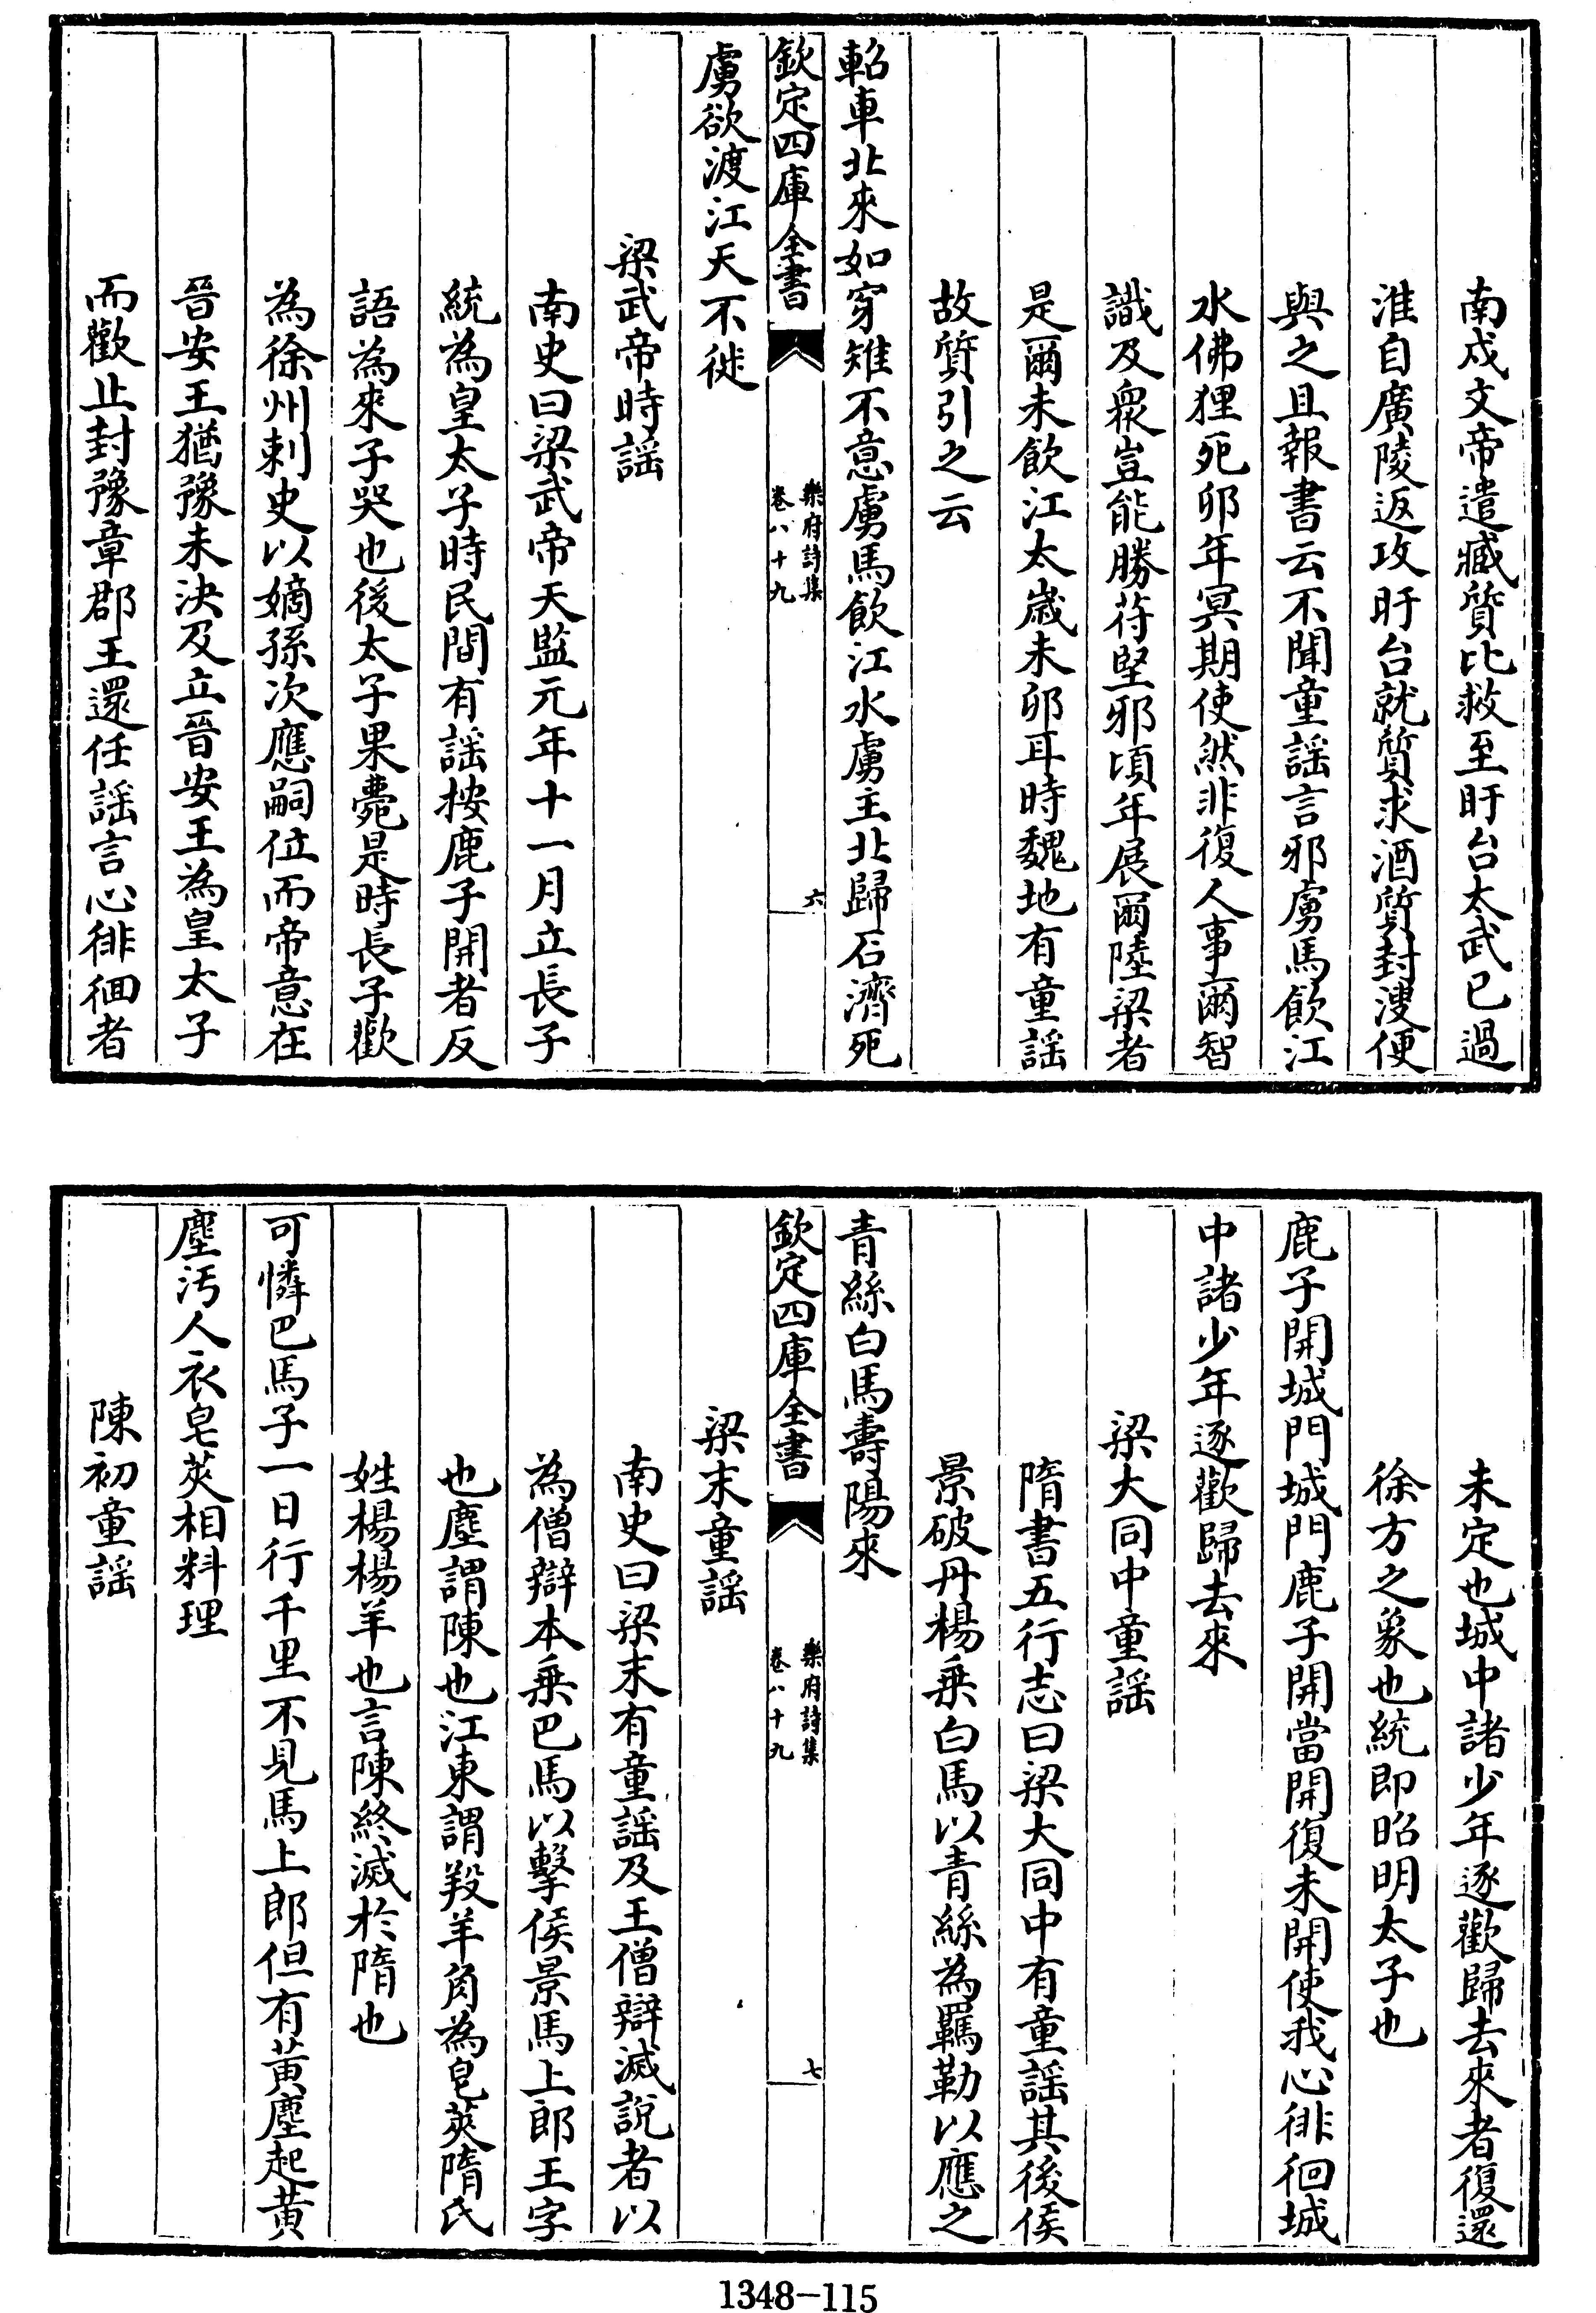 南戍文帝遣臧質北救至盱台太武已過
淮自廣陵返攻盱台就質求酒質封溲便
與之且報書云不聞童謡言邪虜馬飲江
水佛狸死卯年冥期使然非復人事爾智
識及衆豈能勝苻堅邪頃年展爾陸梁者
是爾未飲江太歲未卯耳時魏地有童謡
故質引之云
軺車北來如穿雉不意虜馬飲江水虜主北歸石濟死
欽定四庫全書
樂府詩集
卷八十九
六
虜欲渡江天不徙
梁武帝時謡
南史曰梁武帝天監元年十一月立長子
統為皇太子時民間有謡按鹿子開者反
語為來子哭也後太子果薨是時長子歡
為徐州刺史以嫡孫次應嗣位而帝意在
晉安王猶豫未決及立晉安王為皇太子
而歡止封豫章郡王還任謡言心徘徊者
未定也城中諸少年逐歡歸去來者復還
徐方之象也統即昭明太子也
鹿子開城門城門鹿子開當開復未開使我心徘徊城
中諸少年逐歡歸去來
梁大同中童謡
隋書五行志曰梁大同中有童謡其後侯
景破丹楊乗白馬以青絲為羈勒以應之
青絲白馬壽陽來
欽定四庫全書
樂府詩集
卷八十九
七
梁末童謡
南史曰梁末有童謡及王僧辯滅說者以
為僧辯本乗巴馬以擊侯景馬上郎王字
也塵謂陳也江東謂羖羊角為皂莢隋氏
姓楊楊羊也言陳終滅於隋也
可憐巴馬子一日行千里不見馬上郎但有黄塵起黄
塵汚人衣皂莢相料理
陳初童謡
1348-115